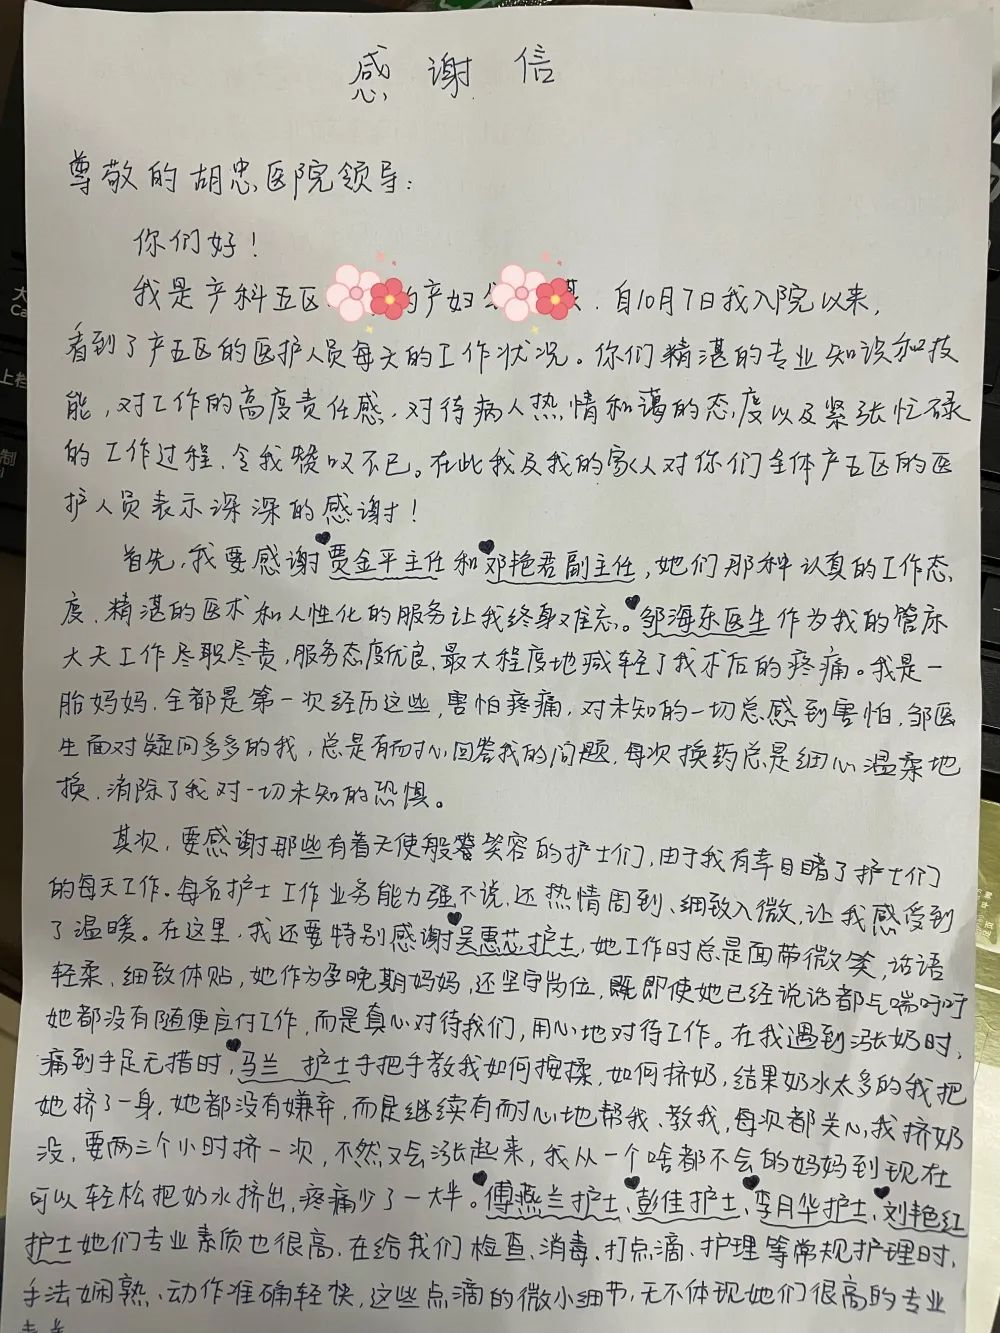 感谢信
尊敬的胡忠医院领导:
你们好!
我是产科五区的产妇 自10月7日我入院以来,
看到了产五区的医护人员每天的工作状况。你们精湛的专业知识和技
能,对工作的高度责任感、对待病人热情和蔼的态度以及紧张忙碌
的工作过程,令我赞叹不已。在此我及我的家人对你们全体产五区的医
护人员表示深深的感谢!
首先,我要感谢贾金平主任和邓艳君副主任,她们那种认真的工作态
度、精湛的医术和人性化的服务让我终身难忘。邹海东医生作为我的管床
大夫工作尽职尽责,服务态度优良,最大程度地减轻了我术后的疼痛。我是一
胎妈妈,全都是第一次经历这些,害怕疼痛,对未知的一切总感到害怕,邹医
生面对疑问多多的我,总是有耐心回答我的问题,每次换药总是细心温柔地
换,消除了我对一切未知的恐惧。
其次,要感谢那些有着天使般笑容的护士们,由于我有幸目睹了护士们
的每天工作。每名护士工作业务能力强不说,还热情周到、细致入微,让我感受到
了温暖。在这里,我还要特别感谢吴惠芯护士,她工作时总是面带微笑,话语
轻柔,细致体贴,她作为孕晚期妈妈,还坚守岗位,既即使她已经说话都气喘吁吁
她都没有随便应付工作,而是真心对待我们,用心地对待工作。在我遇到涨奶时,
痛到手足无措时,马兰 护士手把手教我如何按揉,如何挤奶,结果奶水太多的我把
她挤了一身,她都没有嫌弃,而是继续有耐心地帮我、教我,每次都关心我挤奶
没,要两三个小时挤一次,不然又会涨起来,我从一个啥都不会的妈妈到现在
可以轻松把奶水挤出,疼痛少了一大半。傅燕兰护士、彭佳护士、李月华护士、刘艳红
护士她们专业素质也很高,在给我们检查、消毒、打点滴、护理等常规护理时,
手法娴熟、动作准确轻快,这些点滴的微小细节,无不体现她们很高的专业